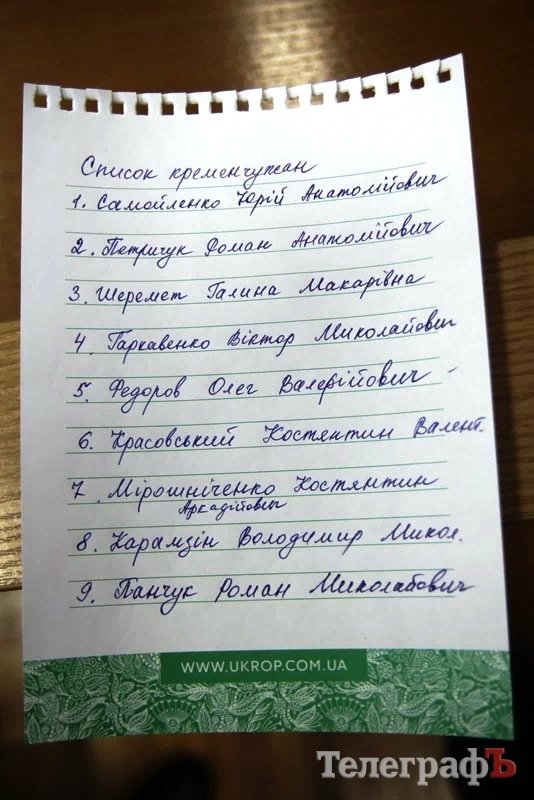 Список кременчужан
1. Самойленко Юрій Анатолійович
2. Петричук Роман Анатолійович
3. Шеремет Галина Макарівна
4. Гаркавенко Віктор Миколайович
5. Федоров Олег Валерійович
6. Красовський Костянтин Валент.
7. Мірошніченко Костянтин
Аркадійович
8. Карамзін Володимир Микол.
9. Панчук Роман Миколайович
WWW.UKROP.COM.UA
ТелеграфЪ